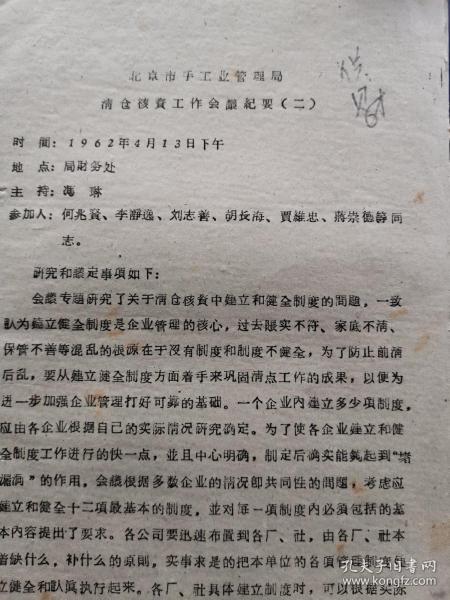 北京市手工业管理局
清仓核資工作会議紀要（二）
时 間：1962年4月13日下午
地 点：局財务处
主 持：海 琳
参加人：何兆賓、李靜逸、刘志善、胡长海、賈雄忠、蔣崇德等同
志。
研究和議定事項如下：
会議专題研究了关于清仓核資中建立和健全制度的問題，一致
认为建立健全制度是企业管理的核心，过去賬实不符、家底不清、
保管不善等混乱的根源在于沒有制度和制度不健全，为了防止前清
后乱，要从建立健全制度方面着手来巩固清点工作的成果，以便为
进一步加强企业管理打好可靠的基础。一个企业內建立多少項制度，
应由各企业根据自己的实际情况研究确定。为了使各企业建立和健
全制度工作进行的快一点，並且中心明确，制定后确实能夠起到"堵
漏洞"的作用，会議根据多数企业的情况即共同性的問題，考虑应
建立和健全十二項最基本的制度，並对每一項制度內必須包括的基
本內容提出了要求。各公司要迅速布置到各厂、社，由各厂、社本
着缺什么，补什么的原則，实事求是的把本单位的各項管理制度
立健全和认真执行起来。各厂、社具体建立制度时，可以根据实际
孔夫子旧书网